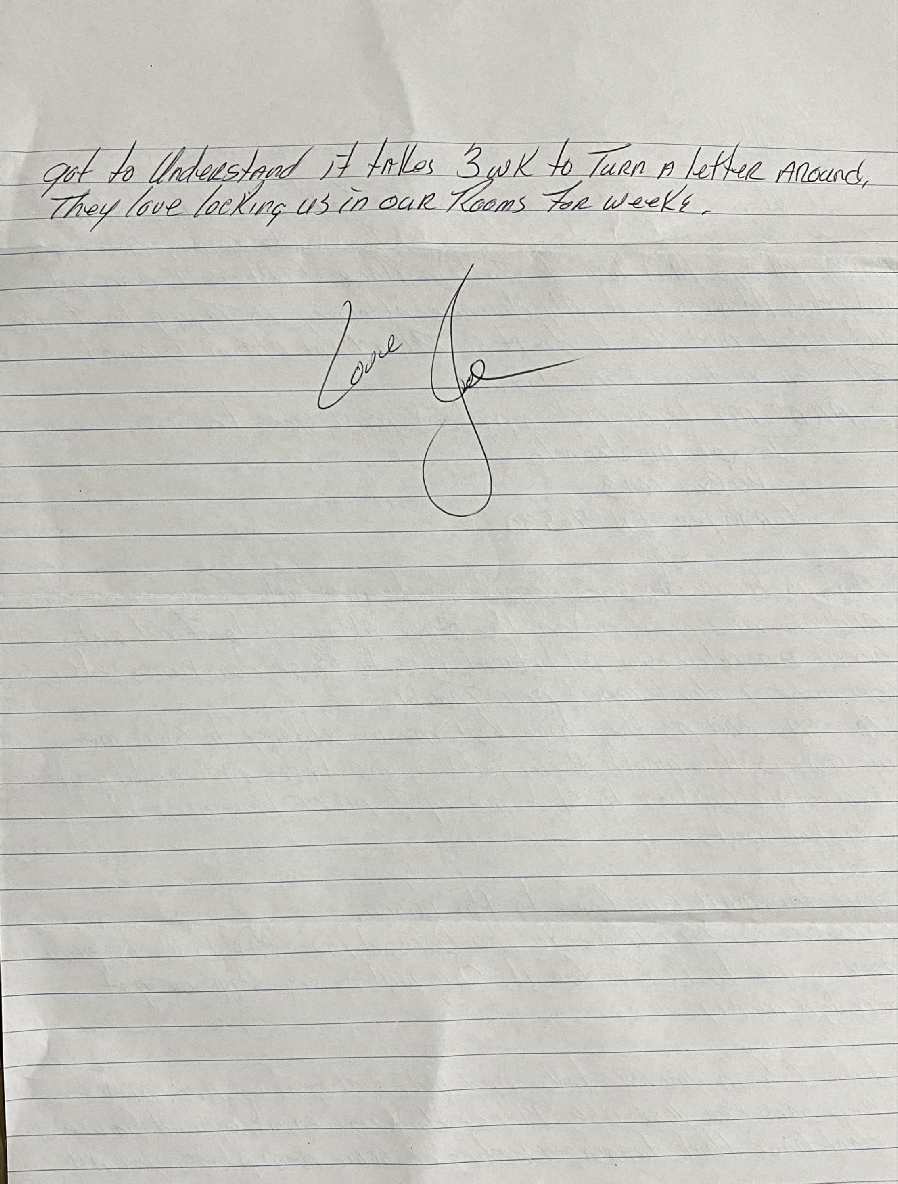 got to Understand it takes 3 wk to Turn A letter Around,
They love locking us in our Rooms For weeks.
Love Joe